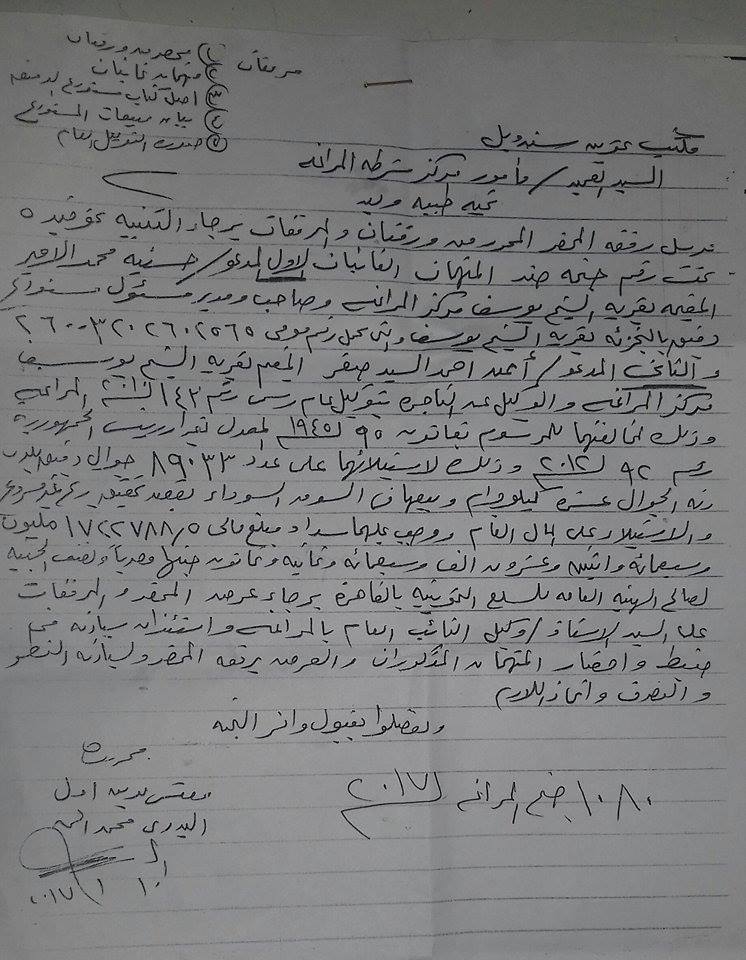 مرفقات
١) محضر من ورقتان
٢)
٣) اصل كتاب مستودع
٤) بيان مبيعات المستودع
٥) صورة التوكيل العام
مكتب تموين سندويل
السيد العميد / مأمور مركز شرطه المراغه
تحيه طيبه وبعد
نرسل رفقه المحضر المحرر من ورقتان والمرفقات برجاء التنبيه نحو قيده
تحت رقم جنحه ضد المتهمان الغائبان الاول المدعو / حسنيه محمد الامير
المقيمه بقريه الشيخ يوسف مركز المراغه وصاحب ومدير مسئول مستودع
دقيق بالتجزئه بقريه الشيخ يوسف والتى تحمل رقم قومى
والثانى المدعو / احمد السيد صقر المقيم بقريه الشيخ يوسف
مركز المراغه والوكيل عن التاجره بتوكيل عام رسمى رقم المراغه
وذلك لمخالفتهما للمرسوم بقانون ٩٥ لسنة ١٩٤٥ المعدل بقرار رئيس الجمهورية
رقم ٩٢ لسنة ٢٠١٢ وذلك لاستيلائهما على عدد ٨٩٠٣٣ جوال دقيق
زنه الجوال عشرة كيلوجرام وبيعهما فى السوق السوداء بقصد تحقيق ربح غير مشروع
والاستيلاء على المال العام ووجب عليهما سداد مبلغ مالى ١٧٢٢٧٨٨/٥ مليون
وسبعمائه واثنين وعشرون الف وسبعمائه وثمانيه وثمانون جنيها مصريا ونصف الجنيه
لصالح الهيئه العامه للسلع التموينيه بالقاهرة برجاء عرض المحضر والمرفقات
على السيد الاستاذ / وكيل النائب العام بالمراغه واستئذان سيادته فى
ضبط واحضار المتهمان المذكوران والعرض برفقه المحضر ولسيادته النظر
والتصرف واتخاذ اللازم
وتفضلوا بقبول وافر التحيه
محرره
مفتش تموين اول
البدرى محمد
١٠٨٠ جنح المراغه لسنة ٢٠١٧